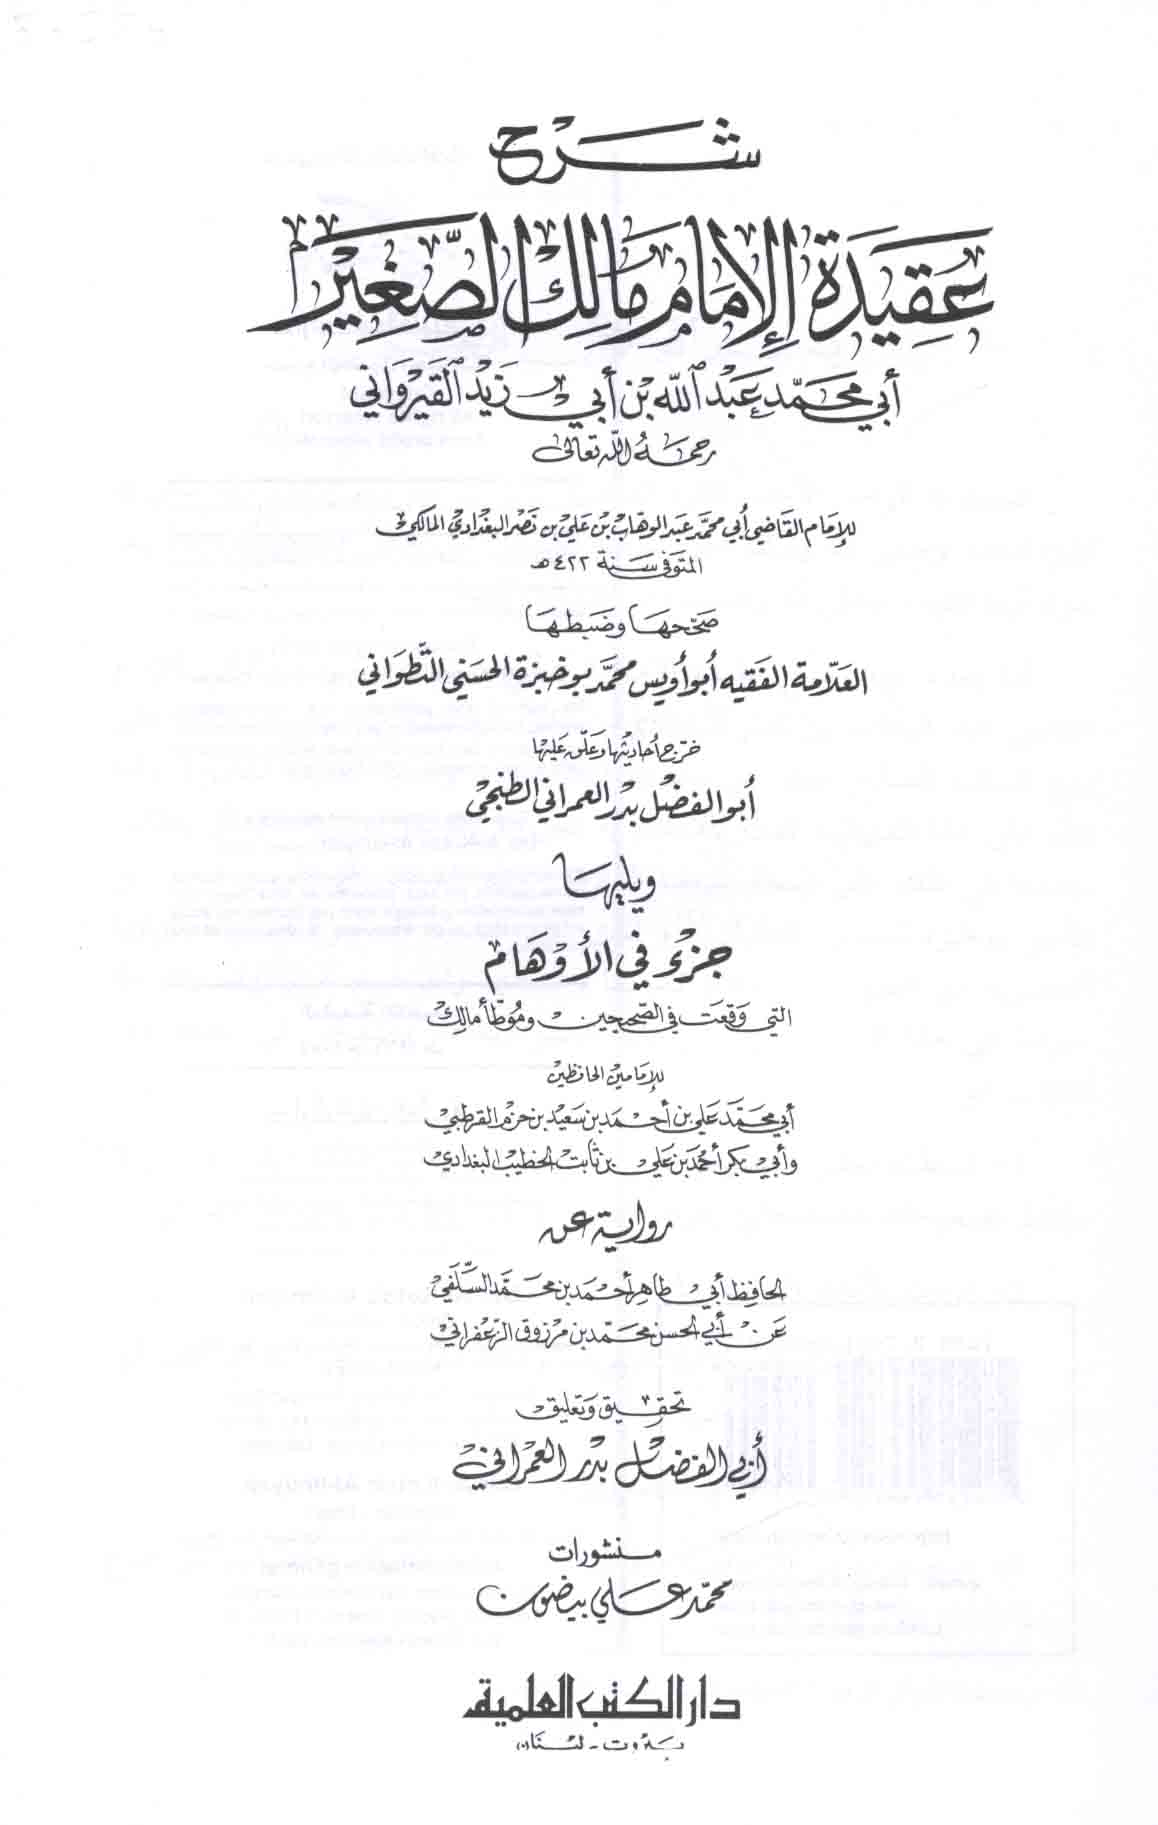 شرح
عقيدة الإمام مالك الصغير
أبي محمد عبد الله بن أبي زيد القيرواني
رحمه الله تعالى
للإمام القاضي أبي محمد عبد الوهاب بن علي بن نصر البغدادي المالكي
المتوفى سنة ٤٢٢ هـ
صححها وضبطها
العلامة الفقيه أبو أويس محمد بوخبزة الحسني التطواني
خرج أحاديثها وعلق عليها
أبو الفضل بدر العمراني الطنجي
ويليها
جزء في الأوهام
التي وقعت في الصحيحين وموطأ مالك
للإمامين الحافظين
أبي محمد علي بن أحمد بن سعيد بن حزم القرطبي
وأبي بكر أحمد بن علي بن ثابت الخطيب البغدادي
رواية عن
الحافظ أبي طاهر أحمد بن محمد السلفي
عن أبي الحسن محمد بن مرزوق الزعفراني
تحقيق وتعليق
أبي الفضل بدر العمراني
منشورات
محمد علي بيضون
دار الكتب العلمية
بيروت - لبنان